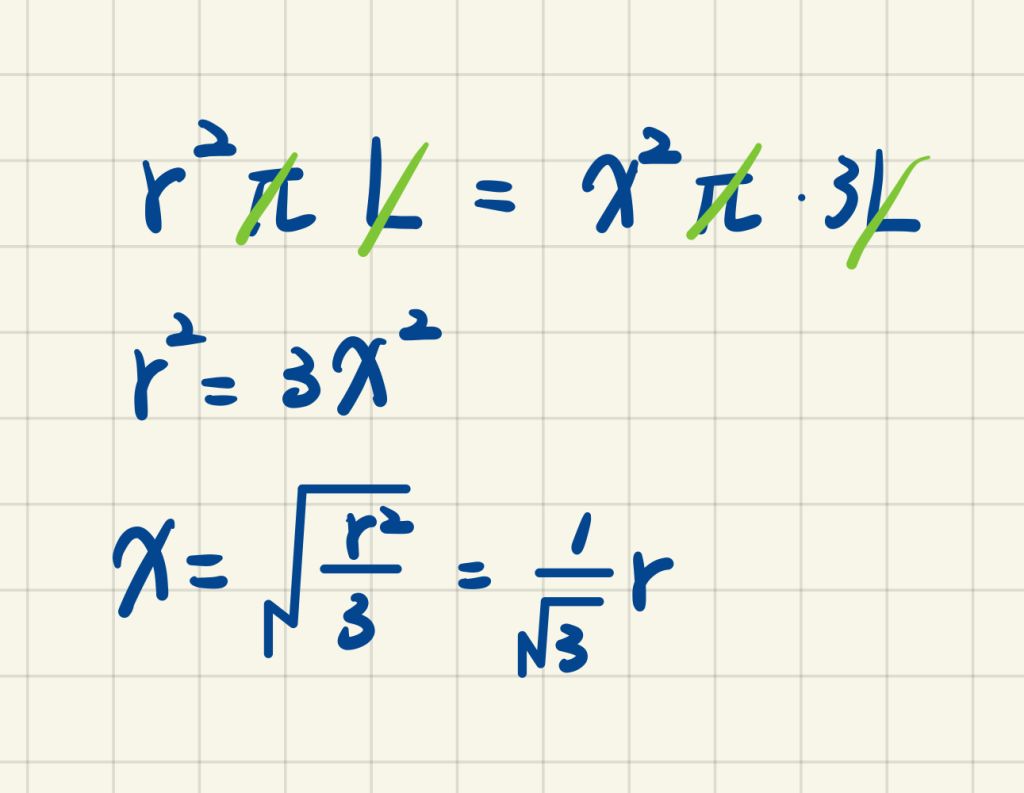 r² π L = x² π · 3L
r² = 3x²
x = √(r²/3) = 1/√3 r